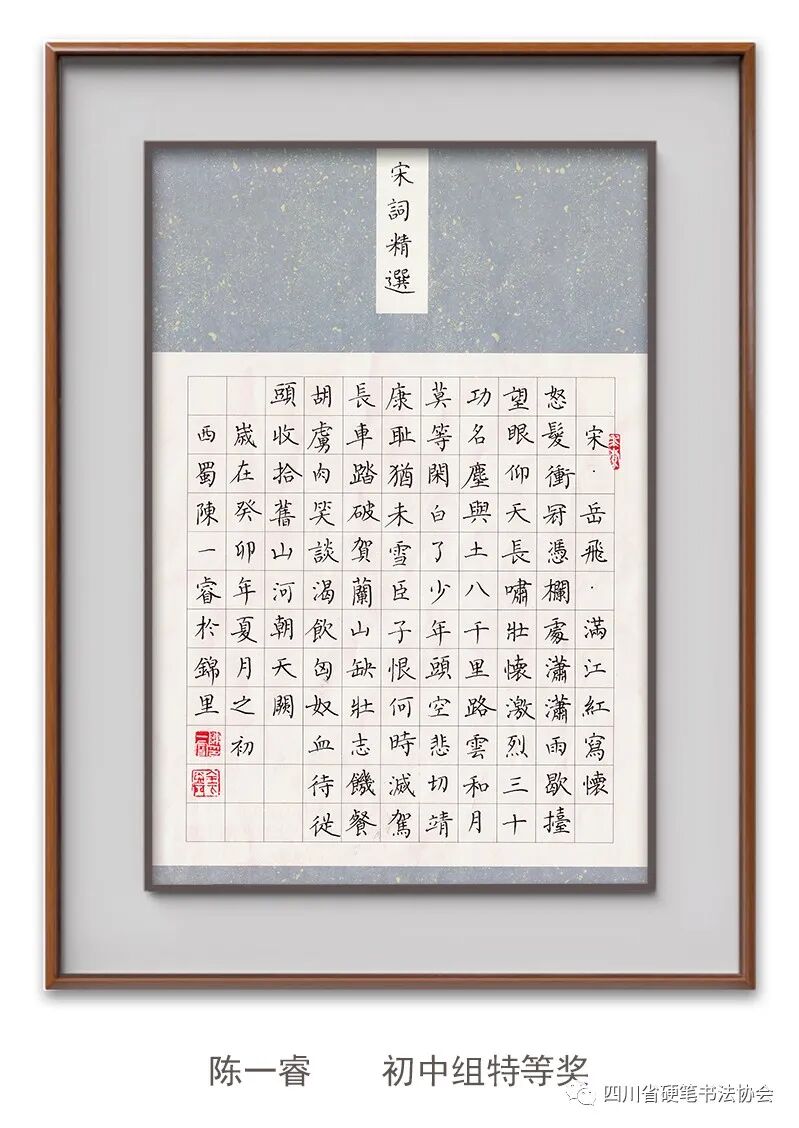 宋詞精選
宋·岳飛·滿江紅寫懷
怒髮衝冠憑欄處瀟瀟雨歇擡
望眼仰天長嘯壯懷激烈三十
功名塵與土八千里路雲和月
莫等閑白了少年頭空悲切靖
康耻猶未雪臣子恨何時滅駕
長車踏破賀蘭山缺壯志饑餐
胡虜肉笑談渴飲匈奴血待從
頭收拾舊山河朝天闕
歲在癸卯年夏月之初
西蜀陳一睿於錦里
陈一睿 初中组特等奖
四川省硬笔书法协会